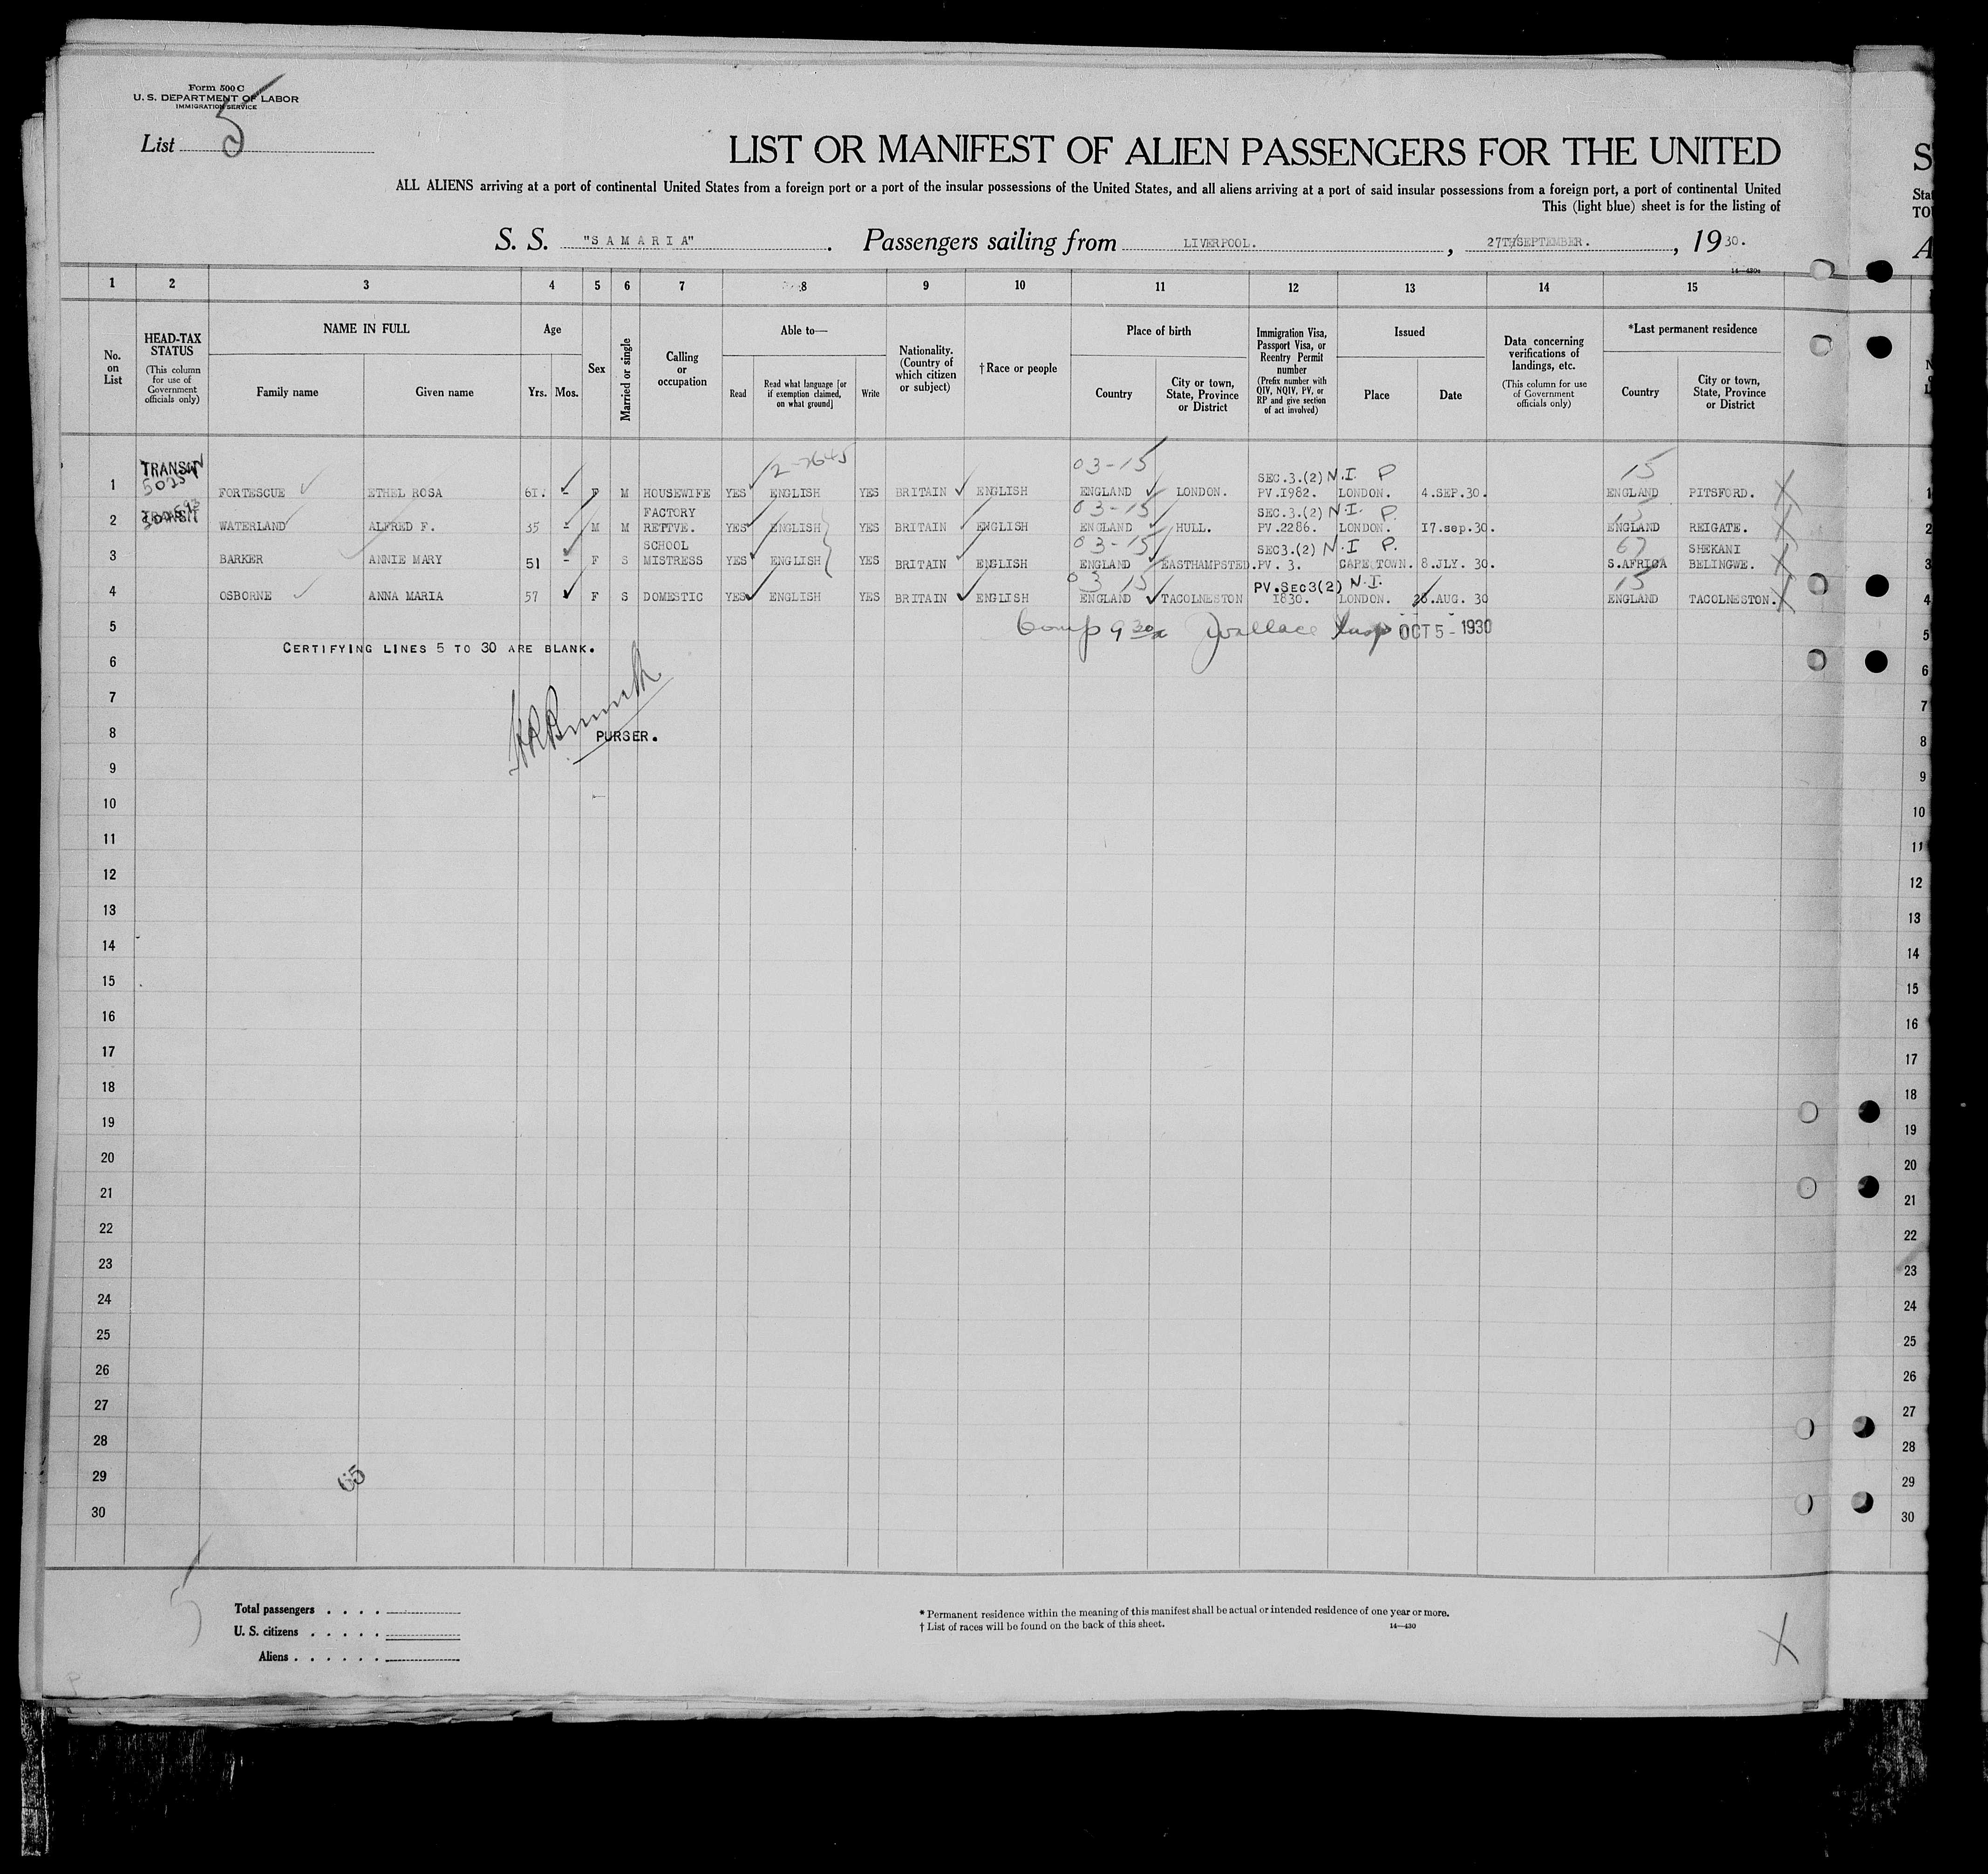 Form 500 C
U. S. DEPARTMENT OF LABOR
IMMIGRATION SERVICE
List 5
LIST OR MANIFEST OF ALIEN PASSENGERS FOR THE UNITED
ALL ALIENS arriving at a port of continental United States from a foreign port or a port of the insular possessions of the United States, and all aliens arriving at a port of said insular possessions from a foreign port, a port of continental United
This (light blue) sheet is for the listing of
S. S. "SAMARIA" . Passengers sailing from LIVERPOOL. , 27TH/SEPTEMBER. , 1930.
14—430a
1 2 3 4 5 6 7 8 9 10 11 12 13 14 15
No. on List
HEAD-TAX STATUS (This column for use of Government officials only)
NAME IN FULL
Family name Given name
Age
Yrs. Mos.
Sex
Married or single
Calling or occupation
Able to—
Read
Read what language [or if exemption claimed, on what ground]
Write
Nationality. (Country of which citizen or subject)
† Race or people
Place of birth
Country
City or town, State, Province or District
Immigration Visa, Passport Visa, or Reentry Permit number (Prefix number with QIV, NQIV, PV, or RP and give section of act involved)
Issued
Place Date
Data concerning verifications of landings, etc. (This column for use of Government officials only)
*Last permanent residence
Country
City or town, State, Province or District
TRANSIT 2-2645 03-15 SEC.3.(2) N.I. P 15
1 FORTESCUE ETHEL ROSA 61. - F M HOUSEWIFE YES ENGLISH YES BRITAIN ENGLISH ENGLAND LONDON. PV.1982. LONDON. 4.SEP.30. ENGLAND PITSFORD. X
TRANSIT FACTORY 03-15 SEC.3.(2) N.I. P. 15
2 WATERLAND ALFRED F. 35 - M M RETTVE. YES ENGLISH YES BRITAIN ENGLISH ENGLAND HULL. PV.2286. LONDON. 17.sep.30. ENGLAND REIGATE. X
SCHOOL 03-15 SEC3.(2) N.I P. 67 SHEKANI
3 BARKER ANNIE MARY 51 - F S MISTRESS YES ENGLISH YES BRITAIN ENGLISH ENGLAND EASTHAMPSTED. PV. 3. CAPE TOWN. 8.JLY. 30. S.AFRICA BELINGWE. X
03 15 PV.SEC3(2) N.I. 15
4 OSBORNE ANNA MARIA 57 F S DOMESTIC YES ENGLISH YES BRITAIN ENGLISH ENGLAND TACOLNESTON 1830. LONDON. 26.AUG. 30 ENGLAND TACOLNESTON. X
5 Comp 9 30 a Wallace Insp OCT 5 - 1930
CERTIFYING LINES 5 TO 30 ARE BLANK.
6
7
8 PURSER.
9
10
11
12
13
14
15
16
17
18
19
20
21
22
23
24
25
26
27
28
29 65
30
5
Total passengers . . . .
U. S. citizens . . . . .
Aliens . . . . . .
* Permanent residence within the meaning of this manifest shall be actual or intended residence of one year or more.
† List of races will be found on the back of this sheet.
14—430
X
S
Sta
TO
A
1
2
3
4
5
6
7
8
9
10
11
12
13
14
15
16
17
18
19
20
21
22
23
24
25
26
27
28
29
30